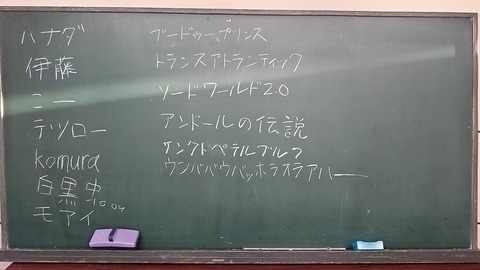 ハナダ
伊藤
ニー
テツロー
komura
白黒中
モアイ
ブードゥープリンス
トランスアトランティック
ソードワールド2.0
アンドールの伝説
サンクトペテルブルク
ウンババウバッホラオラアハー